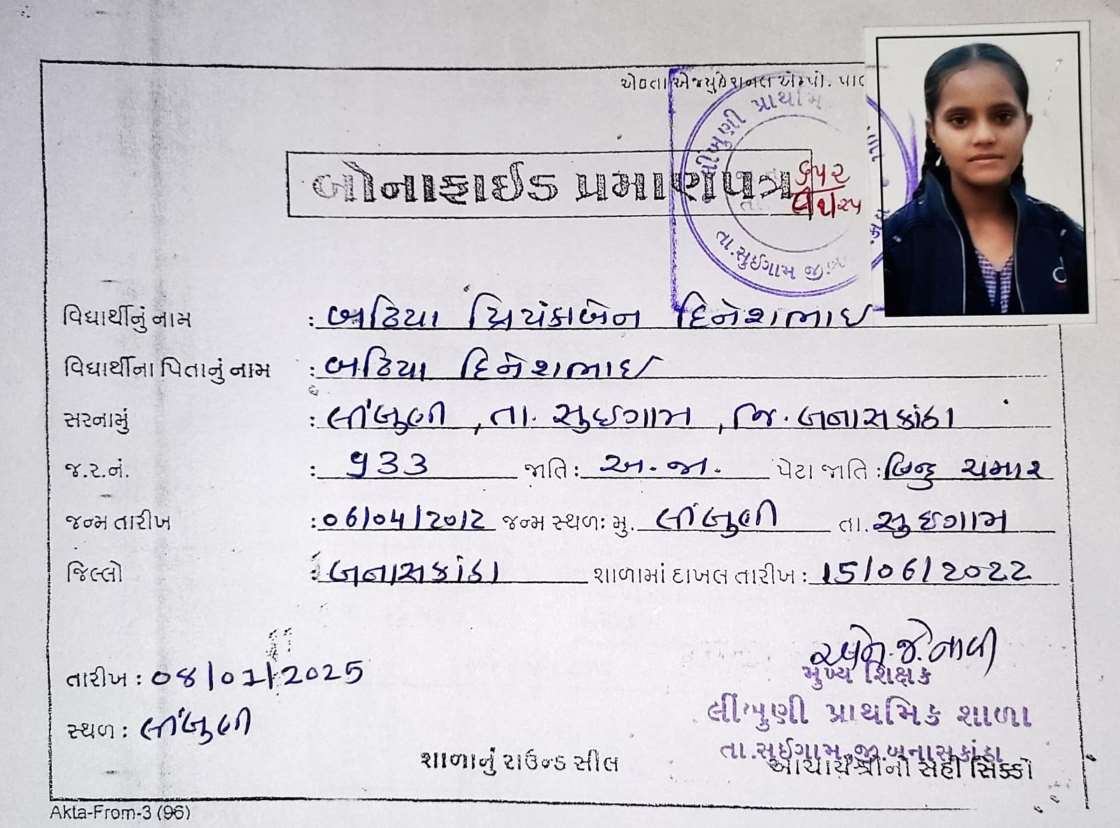 એકતા એજ્યુકેશનલ એમ્પો. પાટ
લીંબુણી પ્રાથમિ
તા.સુઈગામ જી.બના
બોનાફાઈડ પ્રમાણપત્ર
વિદ્યાર્થીનું નામ : બઢિયા પ્રિયંકાબેન દિનેશભાઈ
વિદ્યાર્થીના પિતાનું નામ : બઢિયા દિનેશભાઈ
સરનામું : લીંબુણી , તા. સુઈગામ , જિ. બનાસકાંઠા
જ.ર.નં. : ૧33 જાતિ : અ.જા. પેટા જાતિ : હિન્દુ ચમાર
જન્મ તારીખ : 06/04/2012 જન્મ સ્થળ: મુ. લીંબુણી તા. સુઈગામ
જિલ્લો : બનાસકાંઠા શાળામાં દાખલ તારીખ : 15/06/2022
તારીખ : 08/01/2025
મુખ્ય શિક્ષક
સ્થળ : લીંબુણી
લીંબુણી પ્રાથમિક શાળા
તા.સુઈગામ,જી.બનાસકાંઠા
શાળાનું રાઉન્ડ સીલ આચાર્યશ્રીની સહી સિક્કો
Akta-From-3 (96)